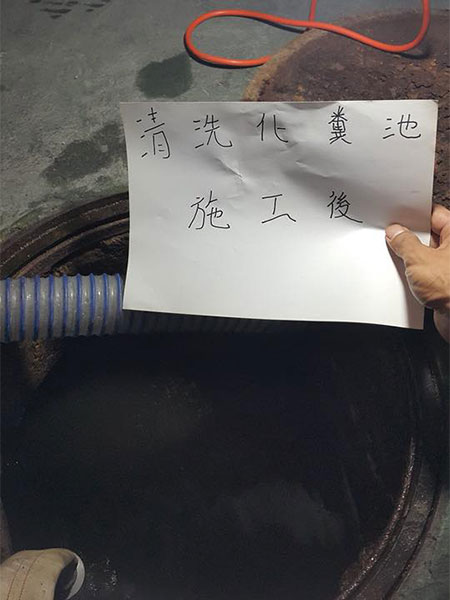 清洗化糞池
施工後